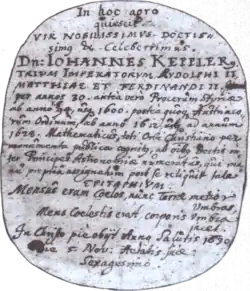 In hoc agro
quiescit
VIR NOBILISSIMUS DOCTIS-
simq & Celeberrimus.
Dn: IOHANNES KEPPLER,
TRIUM IMPERATORUM RUDOLPHI II
MATTHIAE ET FERDINANDI II.
per annos 30. antea vero Procerum Styriae
ab anno 1600. postea quoq Austriaco-
rum Ordinum, ab anno 1612. usq annum
1628. Mathematicus, toti Orbi Christiano per
monumenta publica cognitus, ab Doctis
ter Principes Astronomiae numeratus, qui
propria assignatum post se reliquit tale
EPITAPHIUM.
Mensus eram Coelos, nunc Terrae metior
Umbras
Mens Coelestis erat, corporis Umbra
jacet.
In Christo pie obijt Anno Salutis 1630
die 5 Nov: Aetatis suae
Sexagesimo